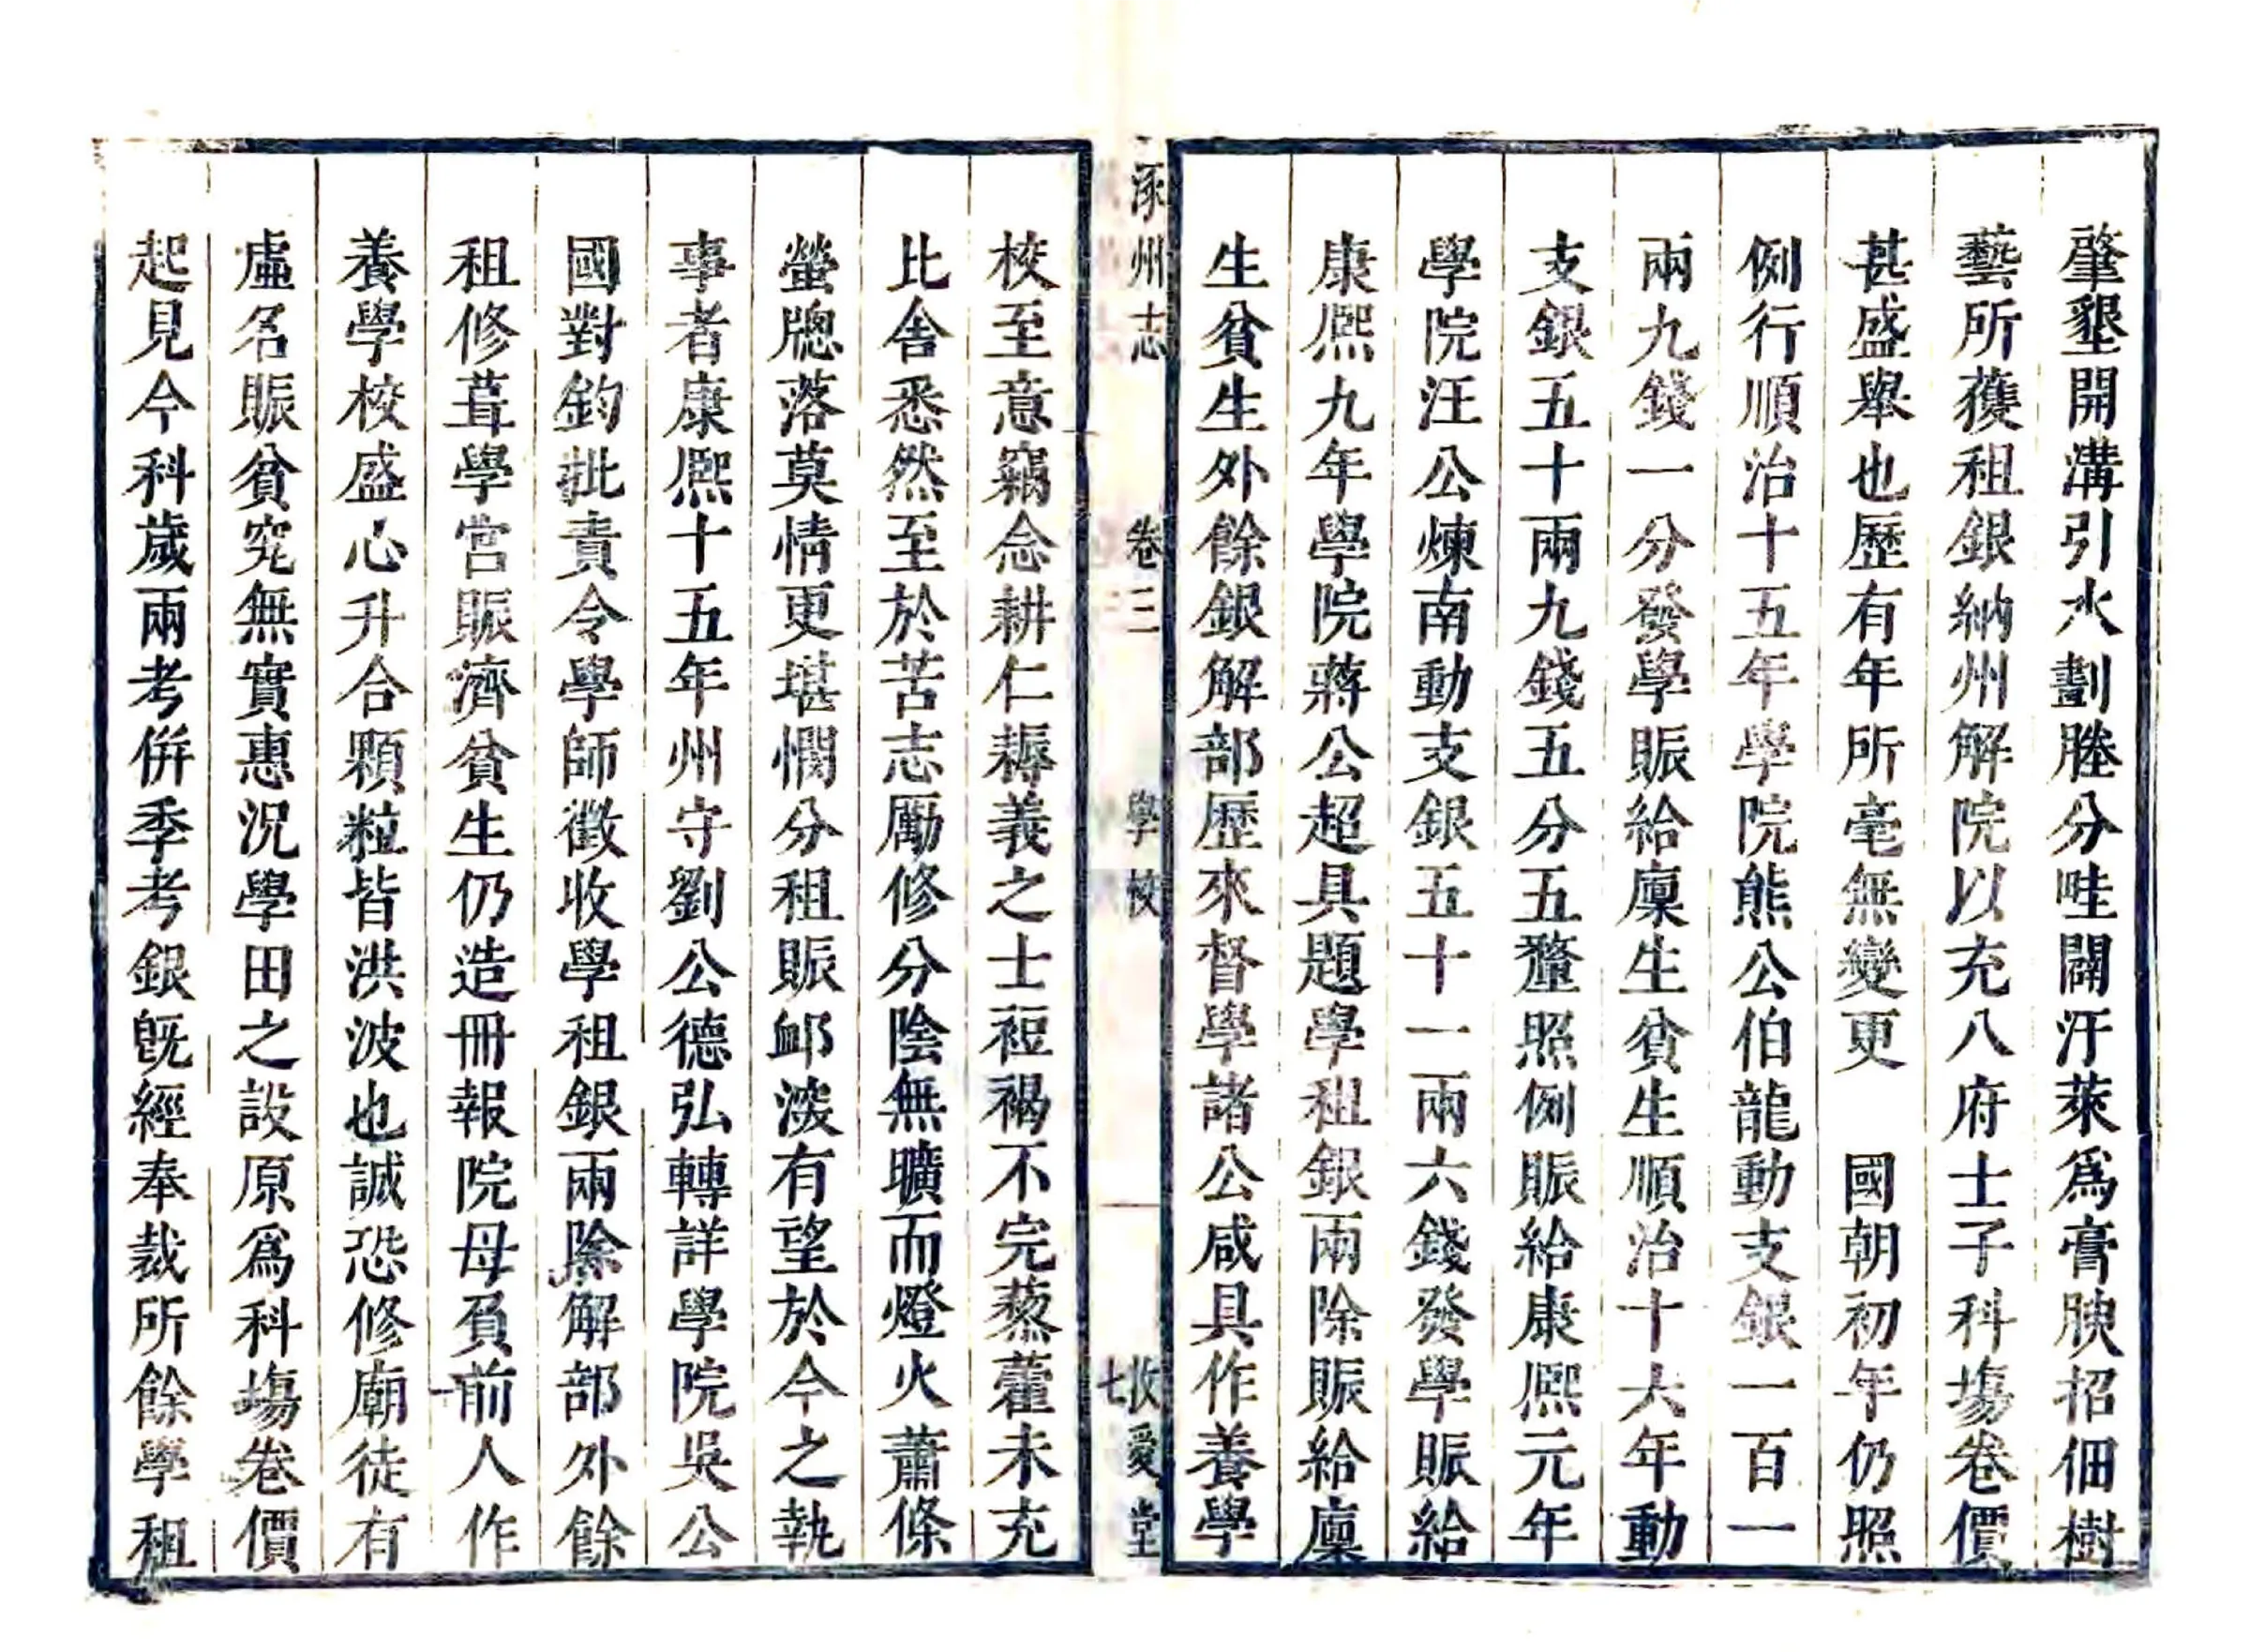 肇墾開溝引水劃塍分畦闢汙萊爲膏腴招佃樹
藝所獲租銀納州解院以充八府士子科塲卷價
甚盛舉也歷有年所毫無變更　國朝初年仍照
例行順治十五年學院熊公伯龍動支銀一百一
兩九錢一分發學賑給廩生貧生順治十六年動
支銀五十兩九錢五分五釐照例賑給康熙元年
學院汪公煉南動支銀五十一兩六錢發學賑給
康熙九年學院蔣公超具題學租銀兩除賑給廩
生貧生外餘銀解部歷來督學諸公咸具作養學
涿州志　卷三　學校　七　收愛堂
校至意竊念耕仁耨義之士裋褐不完藜藿未充
比舍悉然至於苦志勵修分陰無曠而燈火蕭條
螢牕落莫情更堪憫分租賑卹渋有望於今之執
事者康熙十五年州守劉公德弘轉詳學院吳公
國對鈞批責令學師徵收學租銀兩除解部外餘
租修葺學宮賑濟貧生仍造冊報院母負前人作
養學校盛心升合顆粒皆洪波也誠恐修廟徒有
虛名賑貧究無實惠況學田之設原爲科塲卷價
起見今科歲兩考併季考銀旣經奉裁所餘學租